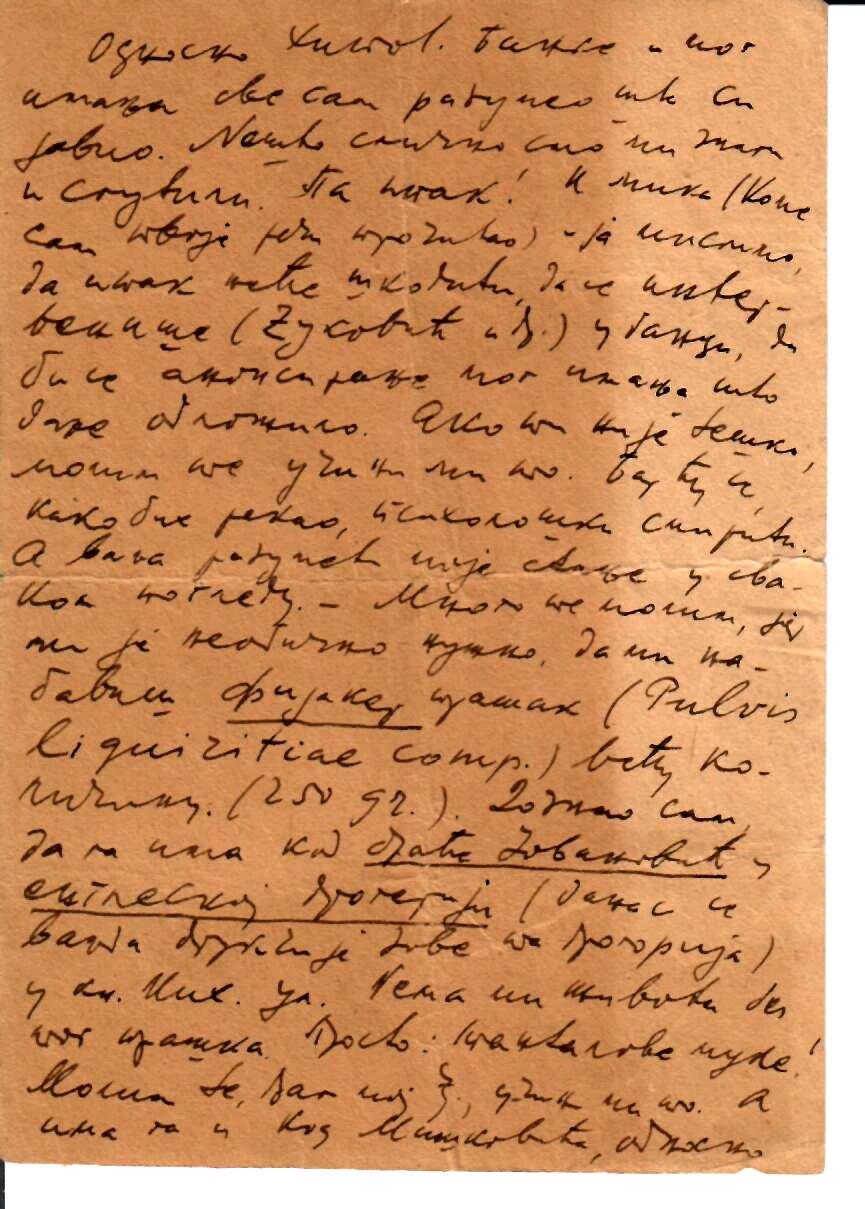 Односно Хипот. Банке и тог
имања све сам разумео што си
јавио. Нешто слично смо ми знали
и слутили. Па ипак! И Мика (Коме
сам твоје речи прочитао) – ја мислимо,
да ипак неће шкодити, да се интер-
венише (Жуковић и др.) у банци, да
би се анонсирање тог имања што
даље одложило. Ако ти није тешко,
молим те учини ми то. Бар ћу се,
како бих рекао, психолошки смирити.
А ваља разумети моје стање у сва-
ком погледу. – Много те молим, јер
ми је необично нужно, да ми на-
бавиш фијакер прашак (Pulvis
liquiritiae comp.) већу ко-
личину. (250 gr.). Дознао сам,
да га има код браће Јовановић у
енглеској дрогерији (данас се
ваљда друкчије зове та дрогерија)
у кн. Мих. ул. Нема ми живота без
тог прашка. Просто: танталове муке!
Молим те, учини ми то. А
има га и код Мишковића, односно